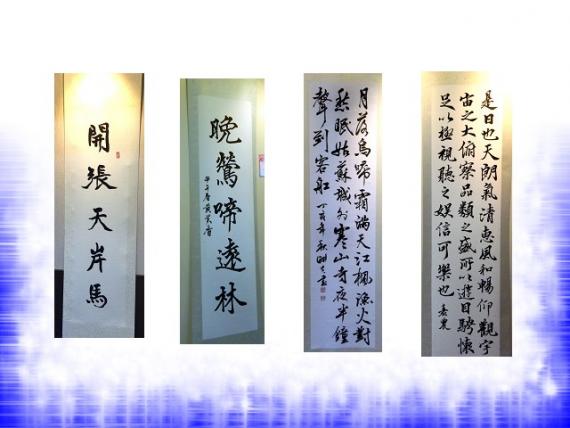 開張天岸馬
晚鶯啼遠林
甲午春
月落烏啼霜滿天江楓漁火對
愁眠姑蘇城外寒山寺夜半鐘
聲到客船 丁亥年秋
是日也天朗氣清惠風和暢仰觀宇
宙之大俯察品類之盛所以遊目騁懷
足以極視聽之娛信可樂也